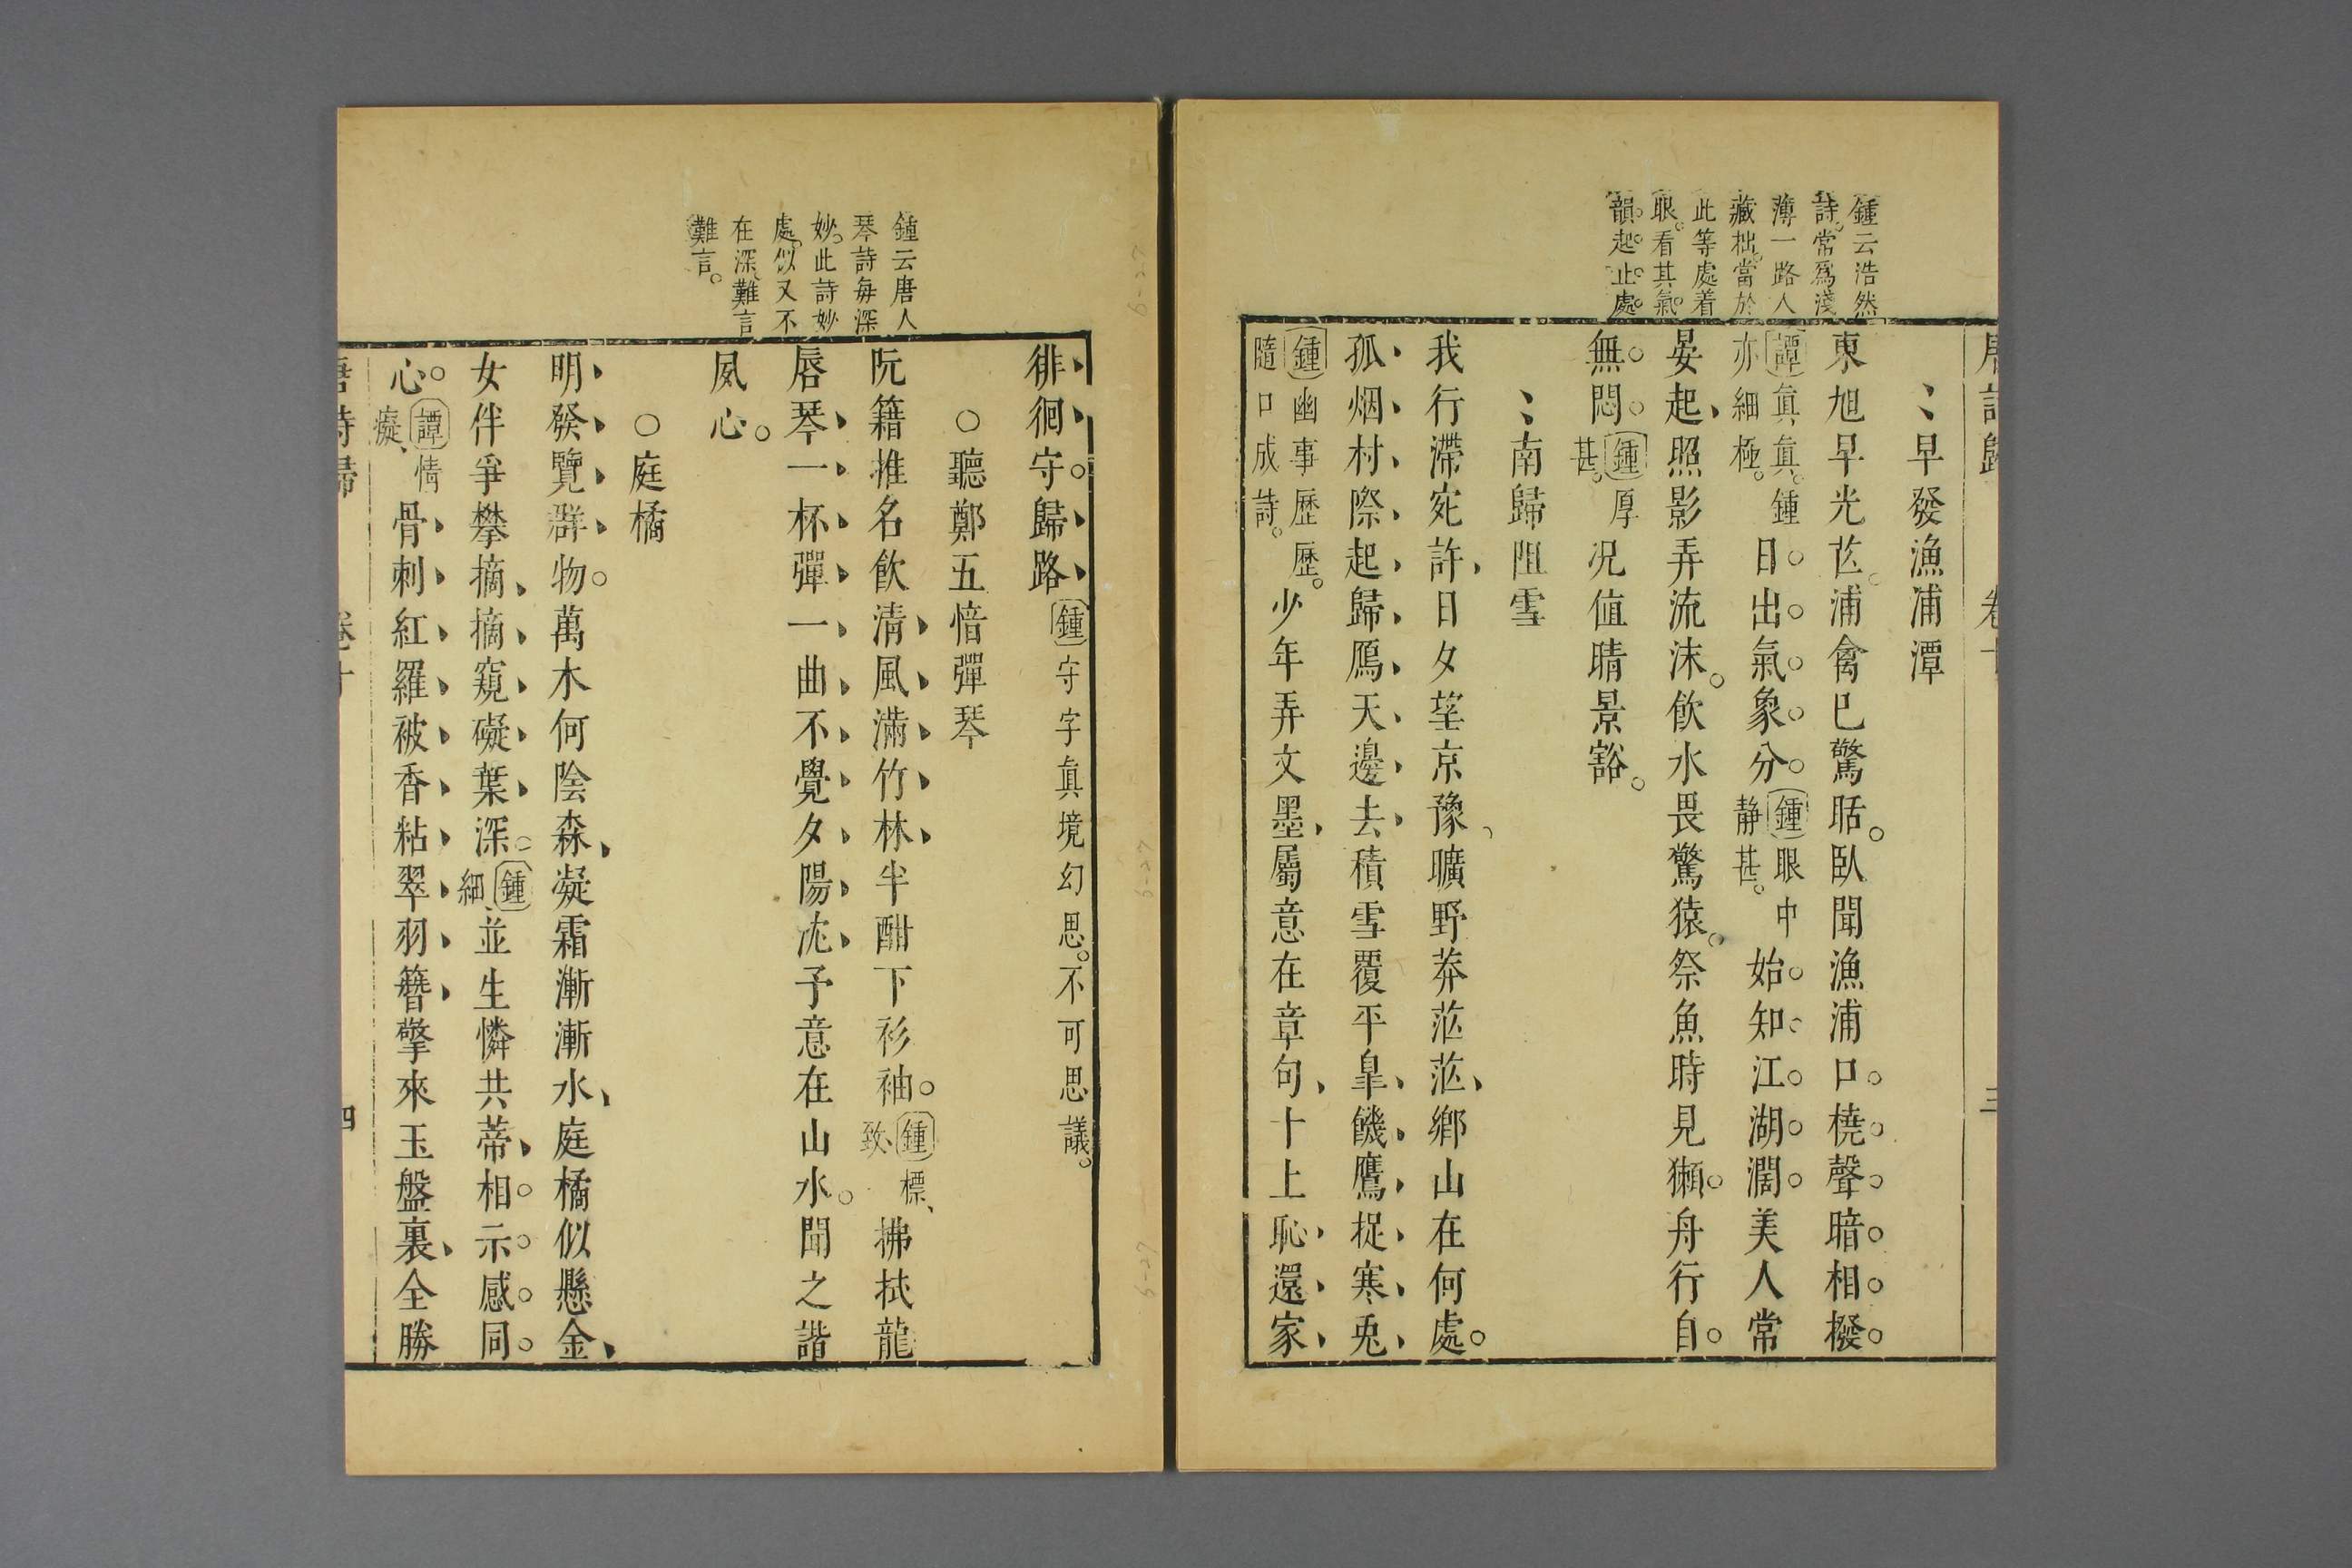 鍾云浩然
詩。常爲淺
薄一路人
藏拙。當於
此等處着
眼。看其氣
韻。起。止。處。
早發漁浦潭
東旭早光芒。浦禽巳驚聒。臥聞漁浦口。橈聲暗相撥。
譚眞、眞。鍾亦細極。日出氣象分。鍾眼中靜甚。始知江湖濶。美人常
晏起、照影弄流沫。飲水畏驚猿。祭魚時見獺。舟行自
無悶。鍾厚甚。况値晴景豁。
南歸阻雪
我行滯宛許、日夕望京豫、曠野莽茫茫、鄉山在何處。
孤烟村際起、歸鴈天邊去、積雪覆平皐、饑鷹捉寒兎、
鍾幽事歷歷。隨口成詩。少年弄文墨、屬意在章句、十上恥還家、
徘徊守歸路、鍾守字眞境幻思。不可思議。
鍾云唐人
琴詩每深
妙。此詩妙
處。似又不
在深、難言
難言。
○聽鄭五愔彈琴
阮籍推名飲清風滿竹林、半酣下衫袖。鍾標、致、拂拭龍
唇琴、一杯彈一曲、不覺夕陽沈、予意在山水。聞之諧
夙心。
○庭橘
明發覽群物。萬木何陰森、凝霜漸漸水、庭橘似懸金、
女伴爭攀摘、摘窺礙葉深。鍾細、並生憐共蒂、相示感同
心。譚情癡、骨刺紅羅被、香粘翠羽簪、擎來玉盤裏、全勝
唐詩歸 卷十 四